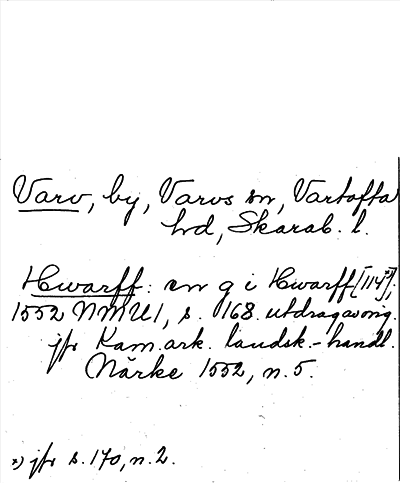 Varv, by, Varvs sn, Vartofta
hd, Skarab. l.
Hwarff: en g i Hwarff [114*)];
1552 NMU1, s. 168. utdrag av orig.
jfr Kam.ark. landsk.-handl.
Närke 1552, n. 5.
*) jfr s. 170, n. 2.